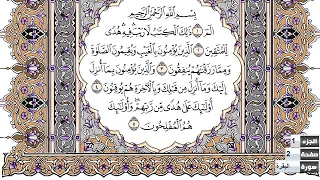 بِسْمِ اللَّهِ الرَّحْمَٰنِ الرَّحِيمِ
الم ١ ذَٰلِكَ الْكِتَابُ لَا رَيْبَ فِيهِ هُدًى
لِلْمُتَّقِينَ ٢ الَّذِينَ يُؤْمِنُونَ بِالْغَيْبِ وَيُقِيمُونَ الصَّلَاةَ
وَمِمَّا رَزَقْنَاهُمْ يُنْفِقُونَ ٣ وَالَّذِينَ يُؤْمِنُونَ بِمَا أُنْزِلَ
إِلَيْكَ وَمَا أُنْزِلَ مِنْ قَبْلِكَ وَبِالْآخِرَةِ هُمْ يُوقِنُونَ ٤
أُولَٰئِكَ عَلَىٰ هُدًى مِنْ رَبِّهِمْ وَأُولَٰئِكَ
هُمُ الْمُفْلِحُونَ ٥
الجزء 1
صفحة 2
سورة البقرة